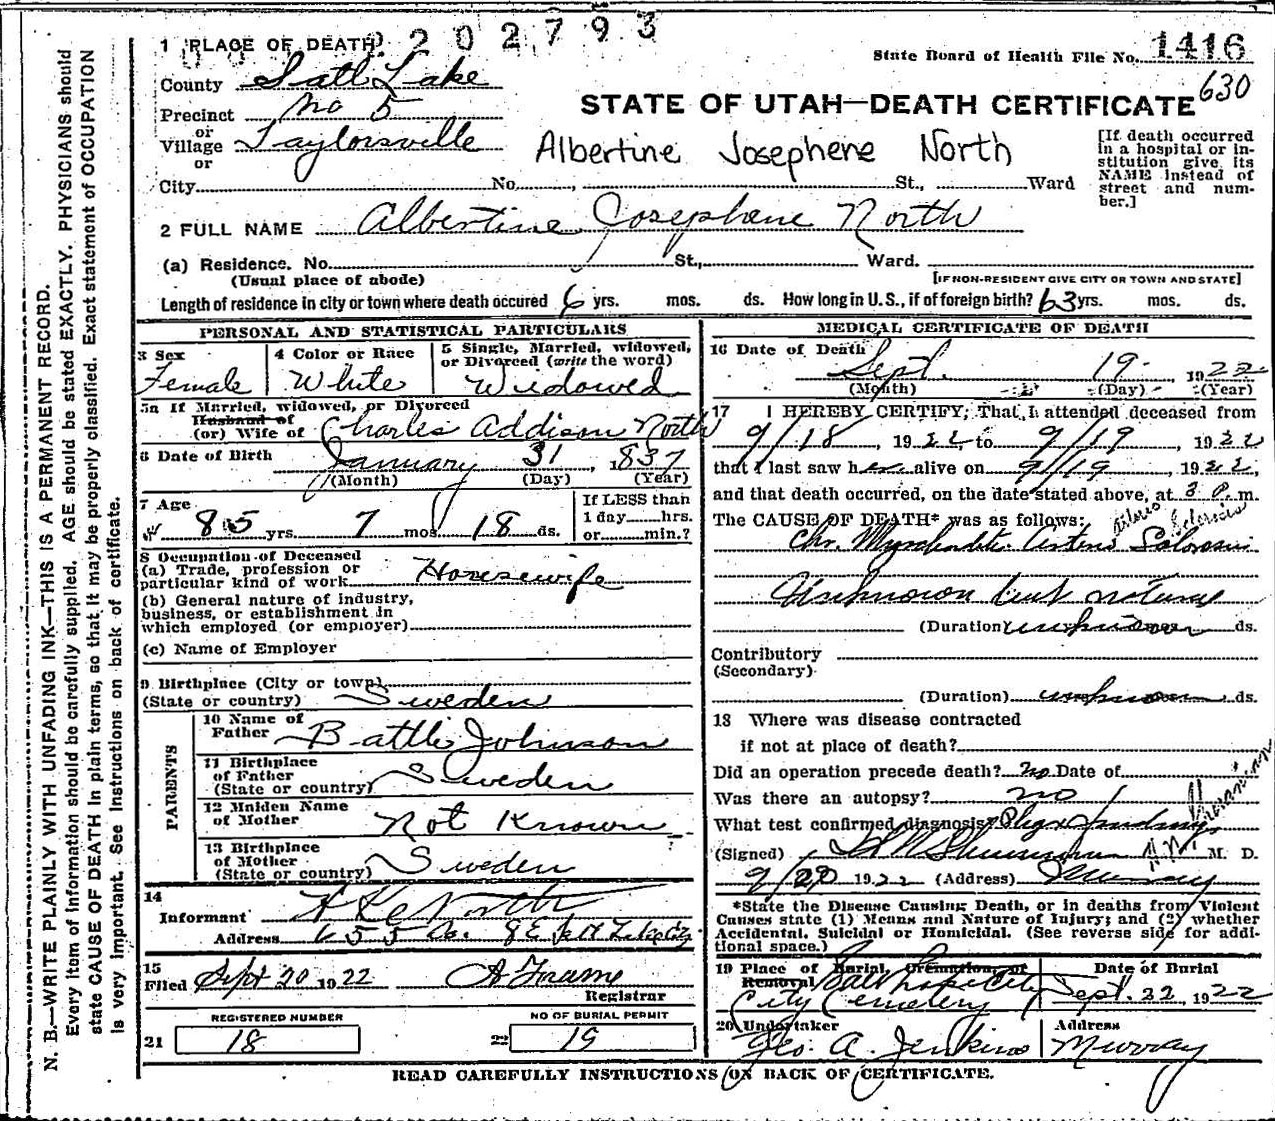 202793
1 PLACE OF DEATH
State Board of Health File No. 1416
630
County Salt Lake
Precinct No 5
or
Village Taylorsville
or
STATE OF UTAH—DEATH CERTIFICATE
Albertine Josephene North
[If death occurred in a hospital or institution give its NAME instead of street and number.]
City No. St., Ward
2 FULL NAME Albertine Josephene North
(a) Residence. No. St., Ward.
(Usual place of abode) [IF NON-RESIDENT GIVE CITY OR TOWN AND STATE]
Length of residence in city or town where death occured 6 yrs. mos. ds. How long in U.S., if of foreign birth? 63 yrs. mos. ds.
PERSONAL AND STATISTICAL PARTICULARS
3 Sex
Female
4 Color or Race
White
5 Single, Married, widowed, or Divorced (write the word)
Widowed
5a If Married, widowed, or Divorced
Husband of
(or) Wife of Charles Addison North
6 Date of Birth January 31, 1837
(Month) (Day) (Year)
7 Age
85 yrs. 7 mos. 18 ds.
If LESS than
1 day hrs.
or min.?
8 Occupation of Deceased
(a) Trade, profession or
particular kind of work Housewife
(b) General nature of industry,
business, or establishment in
which employed (or employer)
(c) Name of Employer
9 Birthplace (City or town)
(State or country) Sweden
PARENTS
10 Name of
Father Battli Johnson
11 Birthplace
of Father
(State or country) Sweden
12 Maiden Name
of Mother Not Known
13 Birthplace
of Mother
(State or country) Sweden
14
Informant North
Address 655 So. 8 E.
15
Filed Sept 20 1922
Registrar
REGISTERED NUMBER
21 18
NO OF BURIAL PERMIT
22 19
MEDICAL CERTIFICATE OF DEATH
16 Date of Death
Sept. 19 1922
(Month) (Day) (Year)
17 I HEREBY CERTIFY, That I attended deceased from
9/18, 1922 to 9/19, 1922
that I last saw her alive on 9/19, 1922,
and that death occurred, on the date stated above, at 3 P. m.
The CAUSE OF DEATH* was as follows:
Chr.
Unknown but natural
(Duration) unknown ds.
Contributory
(Secondary)
(Duration) unknown ds.
18 Where was disease contracted
if not at place of death?
Did an operation precede death? no Date of
Was there an autopsy? no
What test confirmed diagnosis?
(Signed) M. D.
9/20 1922 (Address) Murray
*State the Disease Causing Death, or in deaths from Violent
Causes state (1) Means and Nature of Injury; and (2) whether
Accidental, Suicidal or Homicidal. (See reverse side for addi-
tional space.)
19 Place of Burial, Cremation, or
Removal Salt Lake City
City Cemetery
Date of Burial
Sept. 22, 1922
20 Undertaker
Geo. A. Jenkins
Address
Murray
READ CAREFULLY INSTRUCTIONS ON BACK OF CERTIFICATE.
N. B.—WRITE PLAINLY WITH UNFADING INK—THIS IS A PERMANENT RECORD.
Every item of information should be carefully supplied. AGE should be stated EXACTLY. PHYSICIANS should
state CAUSE OF DEATH in plain terms, so that it may be properly classified. Exact statement of OCCUPATION
is very important. See instructions on back of certificate.